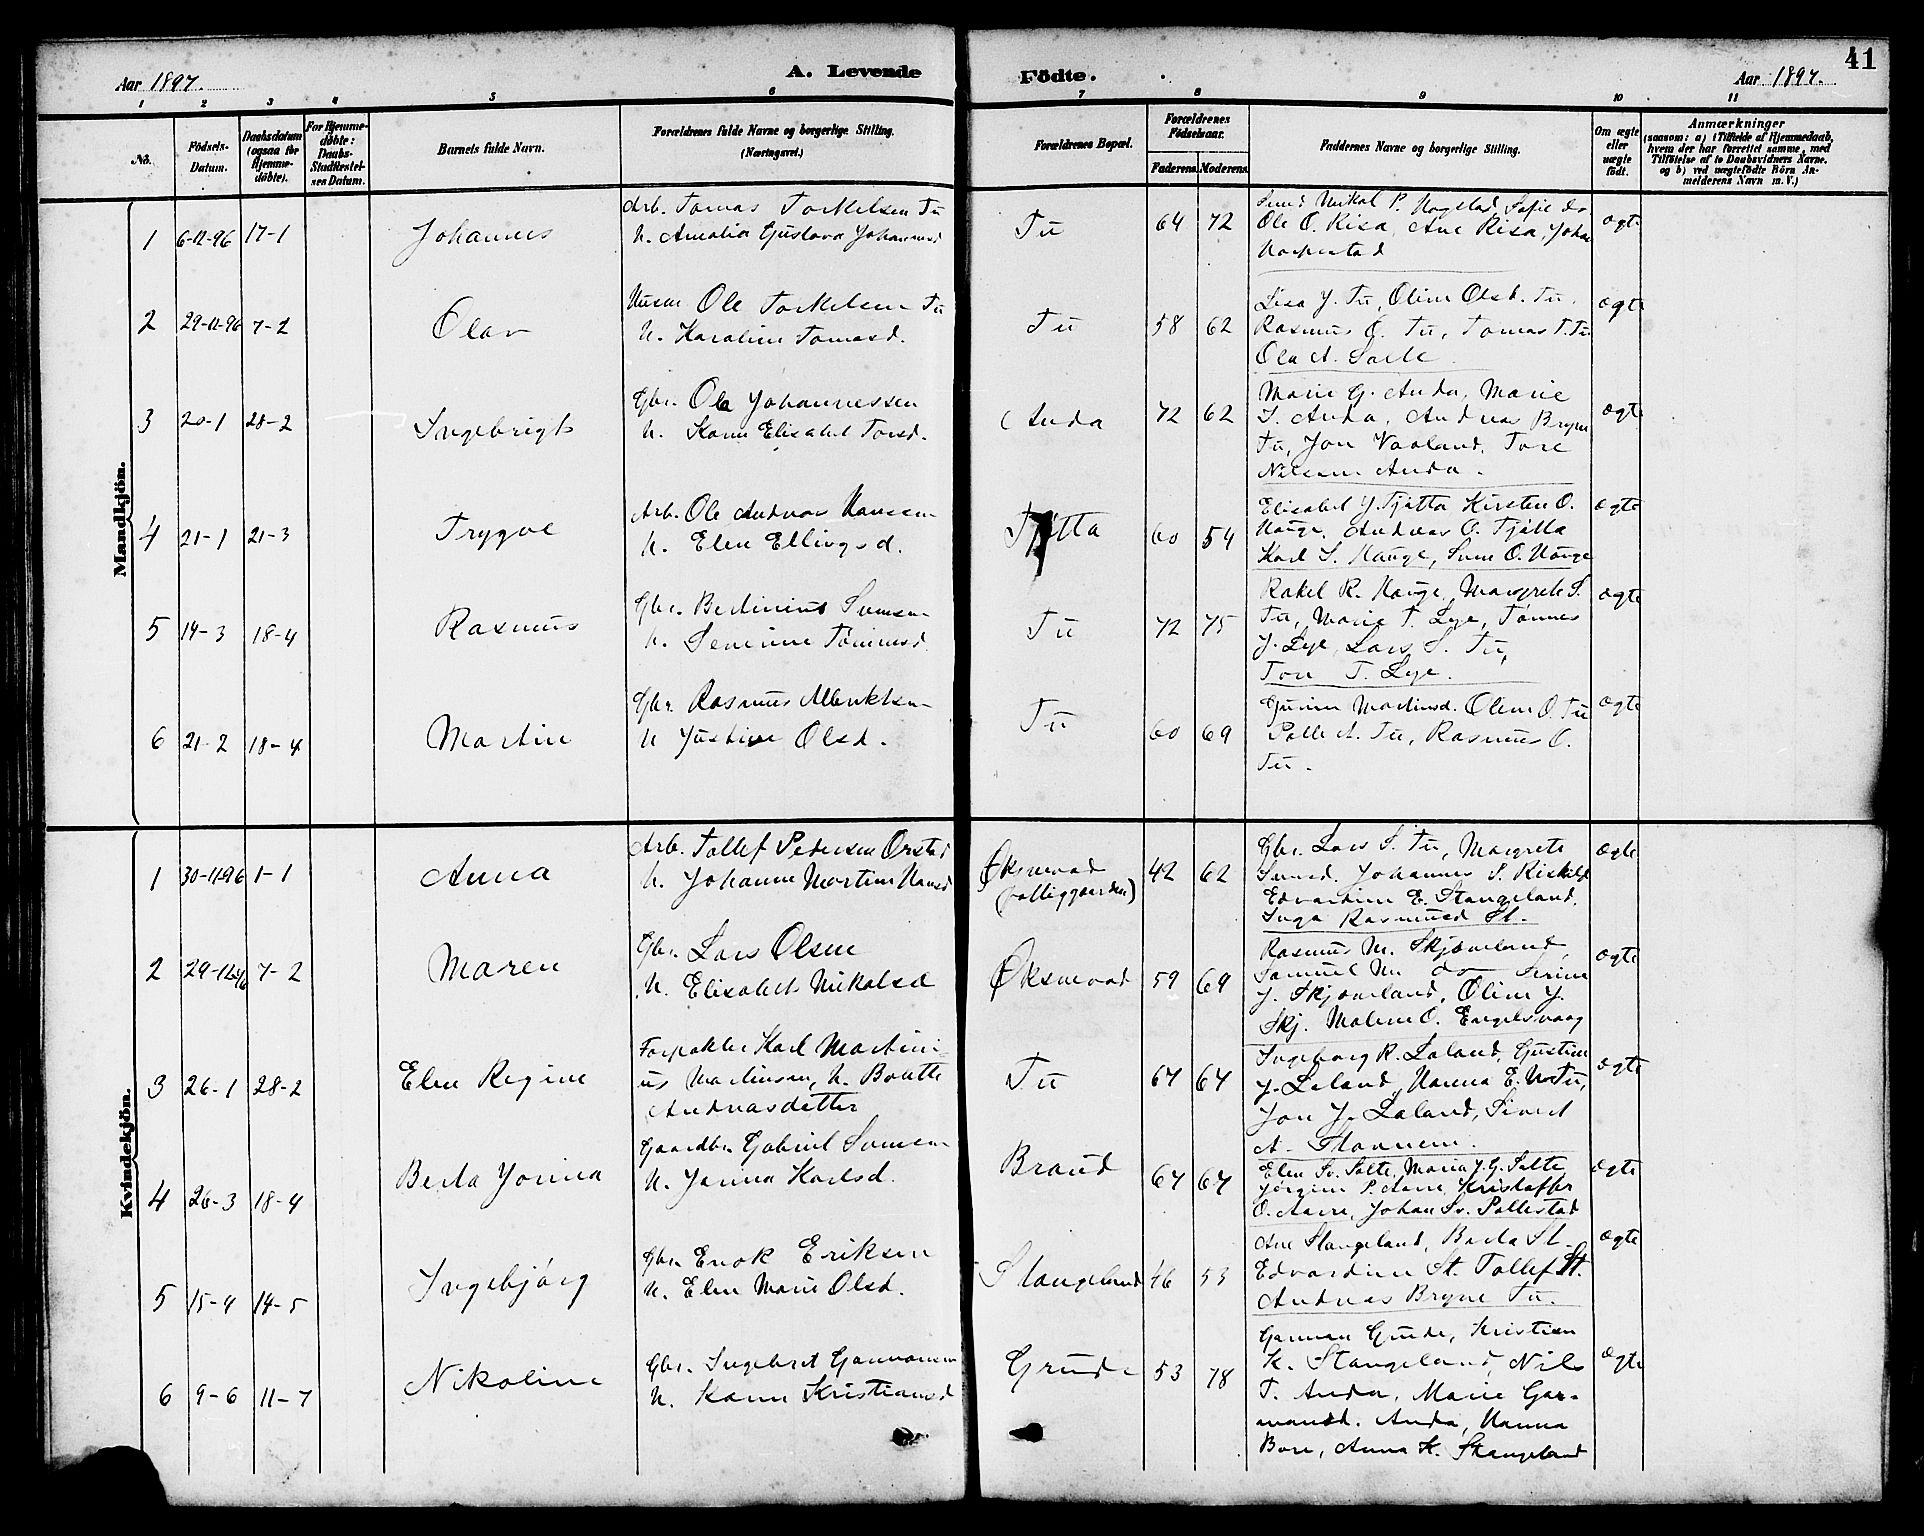 41
Aar 1897.
A. Levende
Födte.
Aar 1897.
1 2 3 4 5 6 7 8 9 10 11
No.
Födsels-Datum.
Daabsdatum (ogsaa for Hjemme-döbte).
For Hjemme-döbte: Daabs-Stadfæstel-ses Datum.
Barnets fulde Navn.
Forældrenes fulde Navne og borgerlige Stilling.
(Næringsvei.)
Forældrenes Bopæl.
Forældrenes Födselsaar.
Faderens Moderens
Faddernes Navne og borgerlige Stilling.
Om ægte eller uægte födt.
Anmærkninger
(saasom: a) i Tilfælde af Hjemmedaab,
hvem der har forrettet samme, med
Tilföielse af to Daabsvidners Navne.
og b) ved uægtefödte Börn An-
melderens Navn m. V.)
Mandkjön.
1 6-11-96 17-1 Johannes
Arb. Tomas Torkelsen Tu
H. Amalia Gustava Johannesd
Tu 64 72
Nikal P. Hogstad Sofie do
Ole O. Risa, Ane Risa, Johan
ægte
2 29-11-96 7-2 Olav
Husm Ole Torkelsen Tu
H. Karoline Tomasd.
Tu 58 62
Lisa J. Tu, Oline Olsd. Tu.
Rasmus O. Tu, Tomas T. Tu
Ola A. Salte
ægte
3 20-1 28-2 Ingebrigt
Gbr. Ole Johannessen
H. Karen Elisabet Torsd.
Anda 72 62
Marie G. Anda, Marie
T. Anda, Andreas Bryne
Tu, Jon Vaaland, Tore
Nilsen Anda.
ægte
4 21-1 21-3 Trygve
Arb. Ole Andreas Hansen
H. Elen Ellingsd.
Tjøtta 60 54
Elisabet J. Tjøtta Kirsten O.
Hauge, Andreas O. Tjøtta
Karl S. Hauge, Sven O. Hauge
ægte
5 14-3 18-4 Rasmus
Gbr. Bertinius Svensen
H. Serine Tønnesd.
Tu 72 75
Rakel R. Hauge, Margrete S.
Tu, Marie T. Lye, Tønnes
J. Lye, Lars S. Tu,
Tore T. Lye.
ægte
6 21-2 18-4 Martin
Gbr. Rasmus Albriktsen
H Justine Olsd.
Tu 60 69
Gurine Martinsd. Oline O. Tu
Palle A. Tu, Rasmus O.
Tu.
ægte
Kvindekjön.
1 30-11-96 1-1 Anna
Arb. Tollef Pedersen Orstad
H. Johanne Martine Hansd
Øksnevad
(Fattiggaarden) 42 62
Gbr. Lars S. Tu, Margrete
Svensd. Johannes S. Riskild
Edvardine E. Stangeland.
Inga Rasmusd St.
ægte
2 29-12-96 7-2 Maren
Gbr. Lars Olsen
H. Elisabet Nikolsd
Øksnevad 59 69
Rasmus M. Skjæveland,
Samuel M. do Serine
J. Skjæveland, Oline J.
Skj. Malene O. Engelsvaag
ægte
3 26-1 28-2 Elen Regine
Forpakter Karl Martini-
us Martinsen, H. Boutte
Andreasdatter
Tu 67 67
Ingeborg R. Laland, Gustine
J. Laland, Hanna E. Tu,
Jon J. Laland, Sivert
A. Stavnem.
ægte
4 26-3 18-4 Berta Jonina
Gaardbr. Gabriel Svensen
H. Janna Karlsd.
Braud 67 67
Elen Sv. Salte, Maria J. G. Salte
Jørgine P. Aarre Kristoffer
O. Aarre, Johan Sv. Pollestad
ægte
5 15-4 14-5 Ingebjørg
Gbr. Enok Eriksen
H. Elen Marie Olsd.
Stangeland 46 53
Ane Stangeland, Berta St.
Edvardine St. Tollef St.
Andreas Bryne Tu.
ægte
6 9-6 11-7 Nikoline
Gbr. Ingebret Garmansen
H. Karen Kristiansd
Grude 53 78
Garman Grude, Kristian
K. Stangeland, Nils
T. Anda, Marie Gar-
mansd. Anda, Hanna
Bore, Anna K. Stangeland
ægte